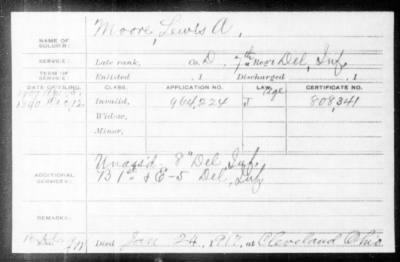 NAME OF SOLDIER: Moore, Lewis A.
SERVICE: Late rank, Co. D, 7th Reg't Del. Inf.
TERM OF SERVICE: Enlisted , 1 Discharged , 1
DATE OF FILING. CLASS. APPLICATION NO. LAW. CERTIFICATE NO.
1890 12, Invalid, 964,224 J 808,341
Widow,
Minor,
ADDITIONAL SERVICES: Unass'd. 8" Del. Inf.
B 1st & E-5 Del. Inf.
REMARKS:
Died Jan 24, 1917, at Cleveland Ohio